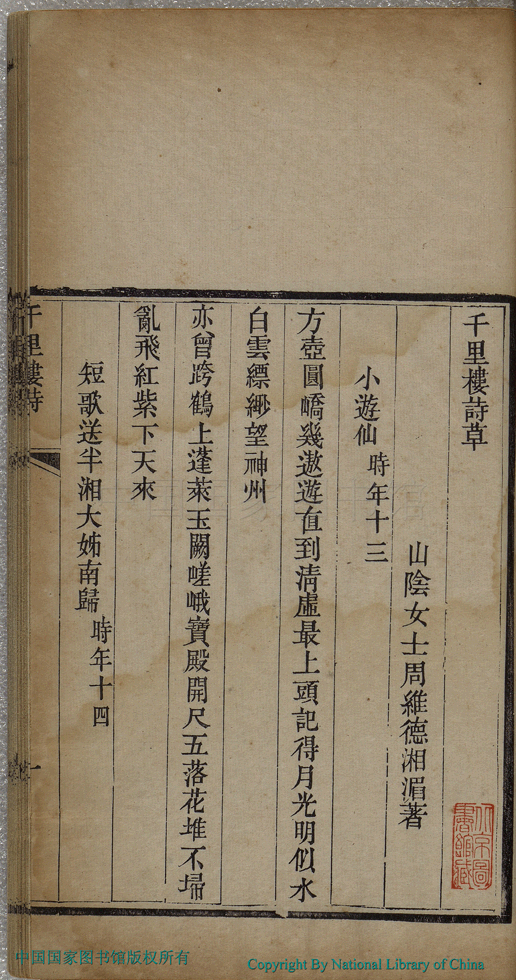 千里樓詩草
山陰女士周維德湘湄著
小遊仙 時年十三
方壺圓嶠幾遨遊直到清虛最上頭記得月光明似水
白雲縹緲望神州
亦曾跨鶴上蓬萊玉闕嵯峨寶殿開尺五落花堆不埽
亂飛紅紫下天來
短歌送半湘大姊南歸 時年十四
千里樓詩
一
北京圖書館藏
中国国家图书馆版权所有
Copyright By National Library of China